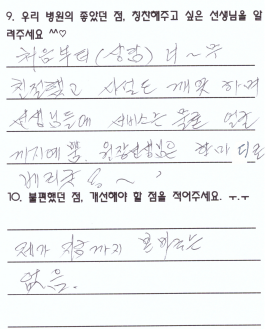 9. 우리 병원의 좋았던 점, 칭찬해주고 싶은 선생님을 알
려주세요 ^^♡
처음부터 (상담) 너~무
친절했고 시설도 깨끗하며
선생님들에 서비스는 물론 얼굴
까지예쁨. 원장선생님은 한마디로
베리굿 ~
10. 불편했던 점, 개선해야 할 점을 적어주세요. ㅜ.ㅜ
제가 지금까지 본바로는
없음.